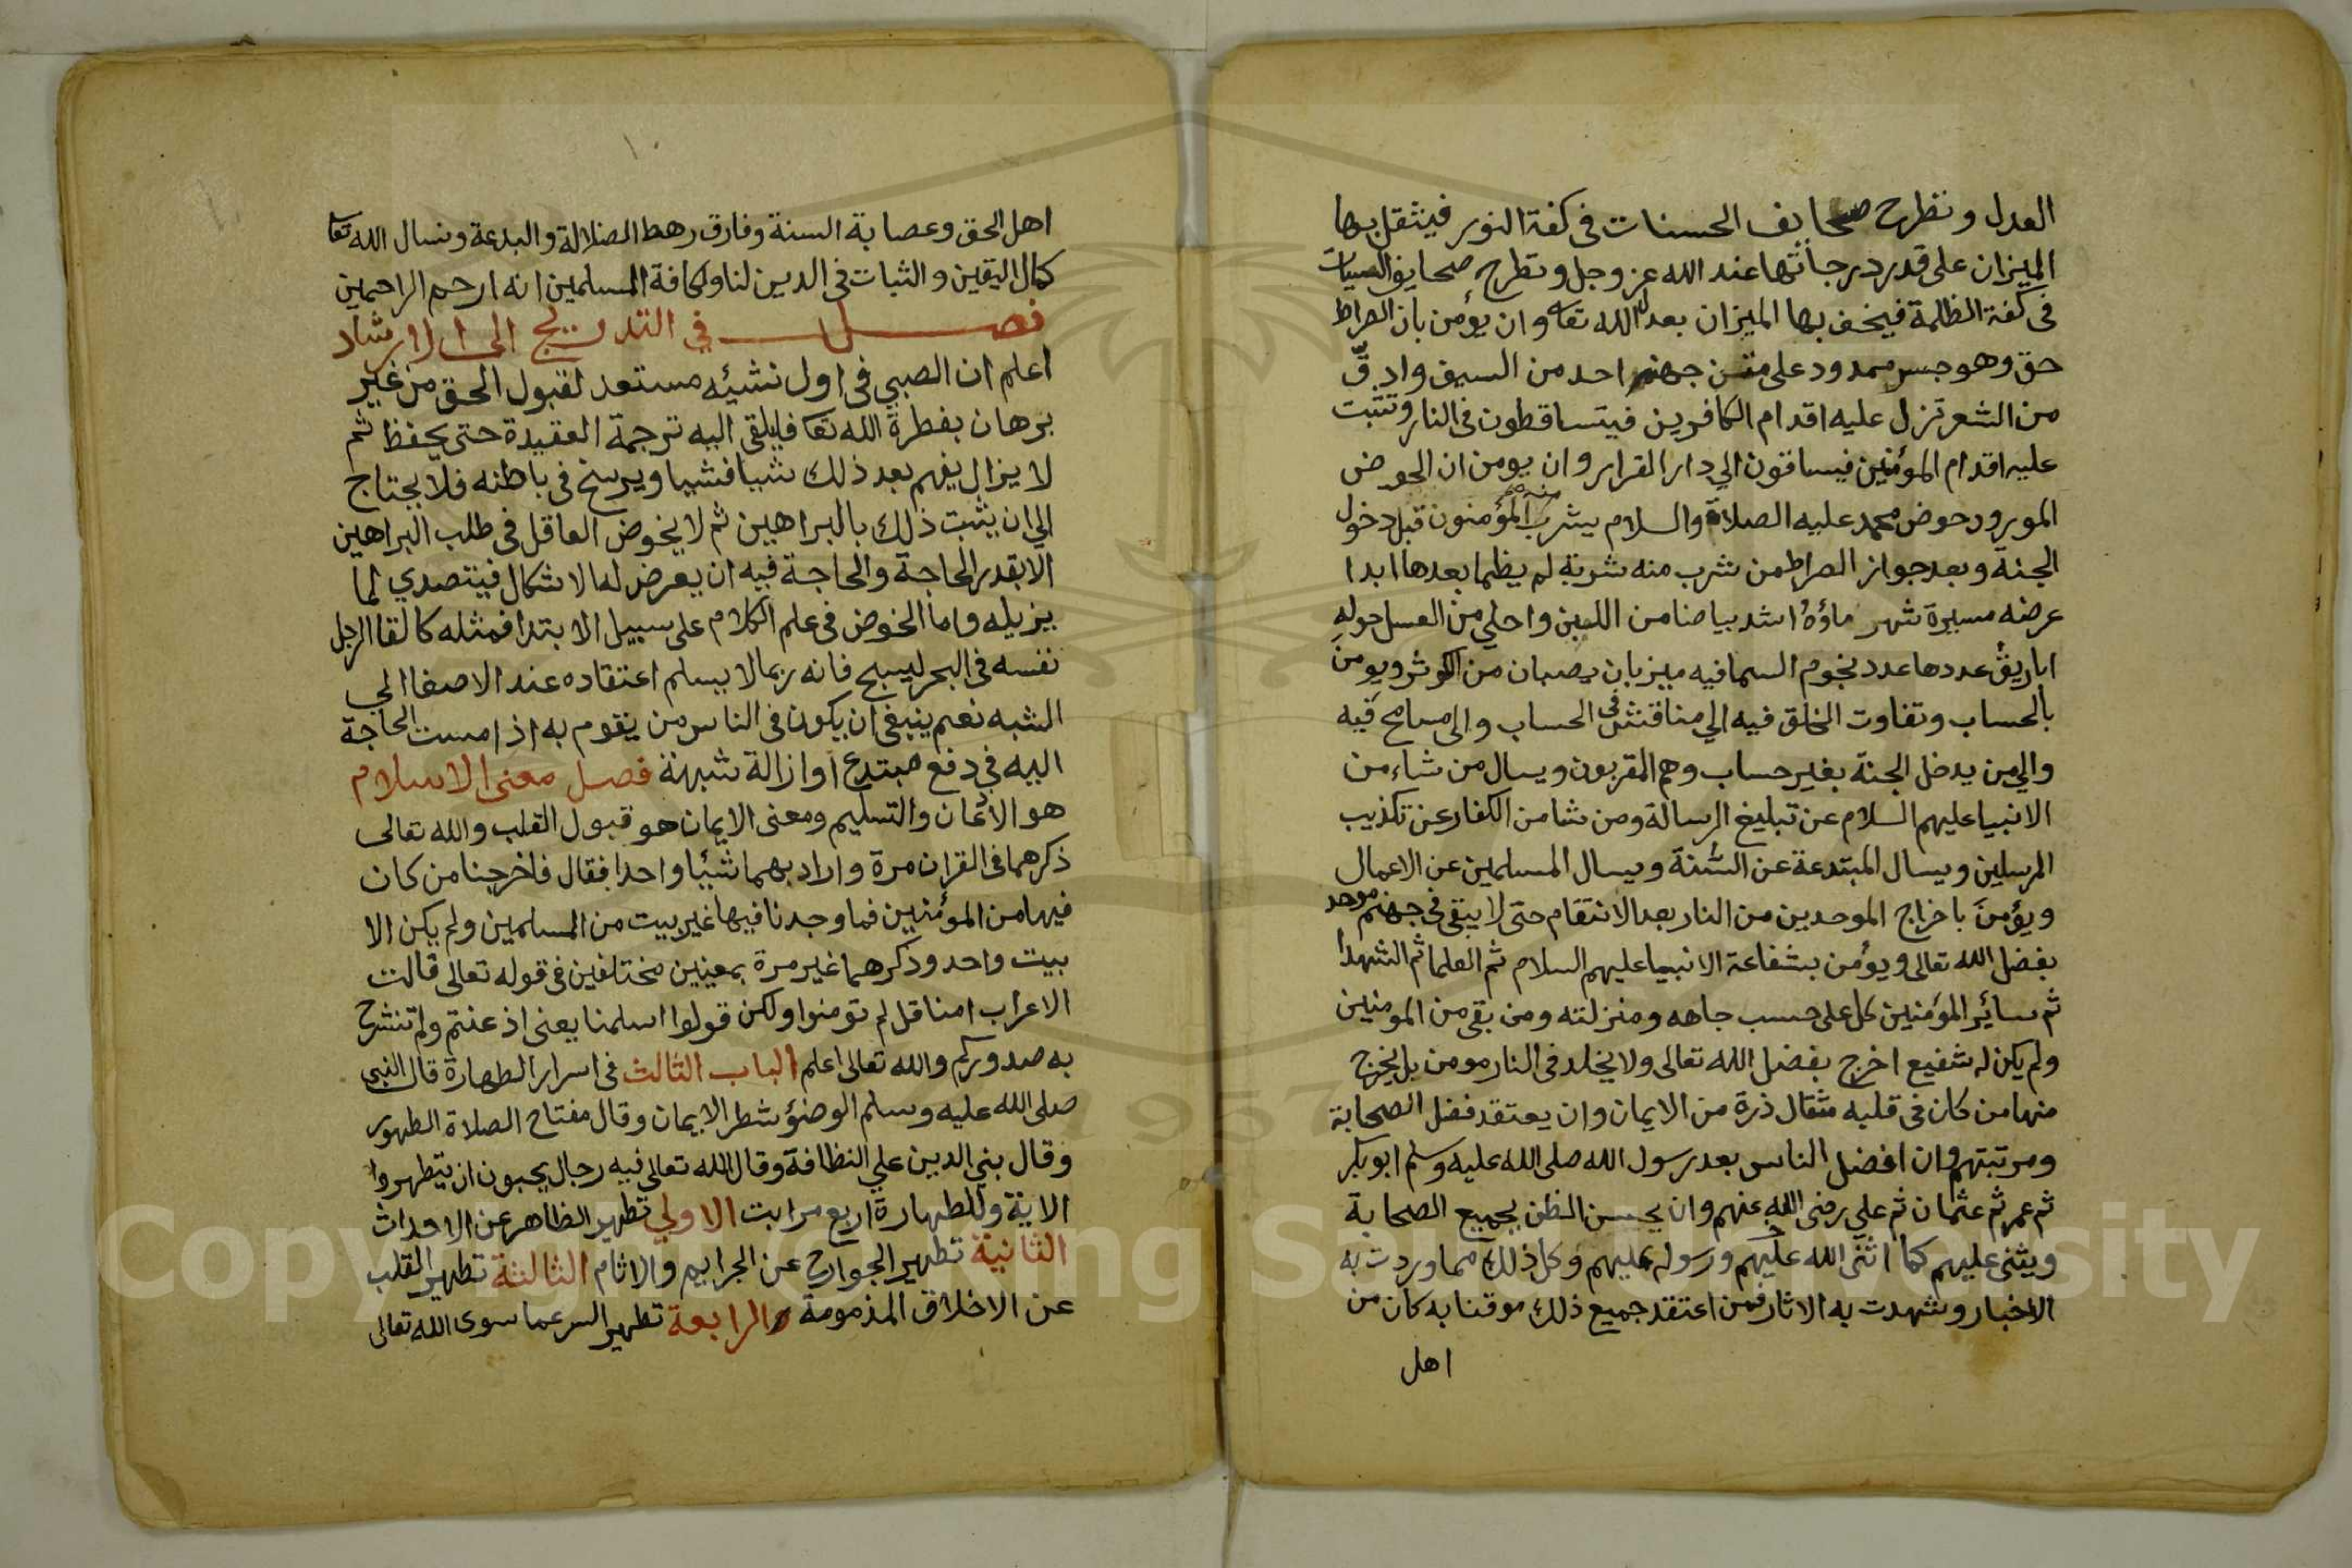 العدل وتطرح صحايف الحسنات فى كفة النور فيثقل بها
الميزان على قدر درجاتها عند الله عز وجل وتطرح صحايف السيات
فى كفة الظلمة فيخف بها الميزان بعدل الله تعا وان يؤمن بان الصراط
حق وهو جسر ممدود على متن جهنم احد من السيف وادقّ
من الشعر تزل عليه اقدام الكافرين فيتساقطون فى النار وتثبت
عليه اقدام المؤمنين فيساقون الي دار القرار وان يومن ان الحوض
المورود حوض محمد عليه الصلاة والسلام يشرب منه المؤمنون قبل دخول
الجنة وبعد جواز الصراط من شرب منه شربة لم يظما بعدها ابدا
عرضه مسيرة شهر ماؤهُ اشد بياضا من اللبن واحلي من العسل حوله
اباريق عددها عدد نجوم السما فيه ميزبان يصبان من الكوثر ويومن
بالحساب وتفاوت الخلق فيه الي مناقش فى الحساب والى مسامح فيه
والي من يدخل الجنة بغير حساب وهم المقربون ويسال من شاء من
الانبيا عليهم السلام عن تبليغ الرسالة ومن شا من الكفار عن تكذيب
المرسلين ويسال المبتدعة عن السُّنة ويسال المسلمين عن الاعمال
ويؤمن باخراج الموحدين من النار بعد الانتقام حتى لا يبقى فى جهنم موحد
بفضل الله تعالى ويؤمن بشفاعة الانبيا عليهم السلام ثم العلما ثم الشهدا
ثم سائر المؤمنين كل على حسب جاهه ومنزلته ومن بقى من المومنين
ولم يكن له شفيع اخرج بفضل الله تعالى ولا يخلد فى النار مومن بل يخرج
منها من كان فى قلبه مثقال ذرة من الايمان وان يعتقد فضل الصحابة
ومرتبتهم وان افضل الناس بعد رسول الله صلى الله عليه وسلم ابو بكر
ثم عمر ثم عثمان ثم علي رضى الله عنهم وان يحسن الظن بجميع الصحابة
ويثنى عليهم كما اثنى الله عليهم ورسوله عليهم وكل ذلك مما وردت به
الاخبار وشهدت به الاثار فمن اعتقد جميع ذلك موقنا به كان من
اهل
١٠
اهل الحق وعصابة السنة وفارق رهط الضلالة والبدعة ونسال الله تعا
كمال اليقين والثبات فى الدين لنا ولكافة المسلمين انه ارحم الراحمين
فصل في التدريج الى الارشاد
اعلم ان الصبي فى اول نشيئه مستعد لقبول الحق من غير
برهان بفطرة الله تعا فليلقى اليه ترجمة العقيدة حتى يحفظ ثم
لا يزال يفهم بعد ذلك شيا فشيا ويرسخ فى باطنه فلا يحتاج
الي ان يثبت ذلك بالبراهين ثم لا يخوض العاقل فى طلب البراهين
الا بقدر الحاجة والحاجة فيه ان يعرض له الاشكال فيتصدي لما
يزيله واما الخوض فى علم الكلام على سبيل الابتدا فمثله كالقا الرجل
نفسه فى البحر ليسبح فانه ربما لا يسلم اعتقاده عند الاصغا الي
الشبه نعم ينبغى ان يكون فى الناس من يقوم به اذا مست الحاجة
اليه في دفع مبتدع او ازالة شبهة فصل معنى الاسلام
هو الاذعان والتسليم ومعنى الايمان هو قبول القلب والله تعالى
ذكرهما فى القران مرة واراد بهما شيئا واحدا فقال فاخرجنا من كان
فيها من المؤمنين فما وجدنا فيها غير بيت من المسلمين ولم يكن الا
بيت واحد وذكرهما غير مرة بمعنيين مختلفين فى قوله تعالى قالت
الاعراب امنا قل لم تومنوا ولكن قولوا اسلمنا يعنى اذعنتم ولم تنشرح
به صدوركم والله تعالى اعلم الباب الثالث فى اسرار الطهارة قال النبى
صلى الله عليه وسلم الوضؤ شطر الايمان وقال مفتاح الصلاة الطهور
وقال بني الدين علي النظافة وقال الله تعالى فيه رجال يحبون ان يتطهروا
الاية وللطهارة اربع مراتب الاولي تطهير الظاهر عن الاحداث
الثانية تطهير الجوارح عن الجرايم والاثام الثالثة تطهير القلب
عن الاخلاق المذمومة والرابعة تطهير السر عما سوى الله تعالى